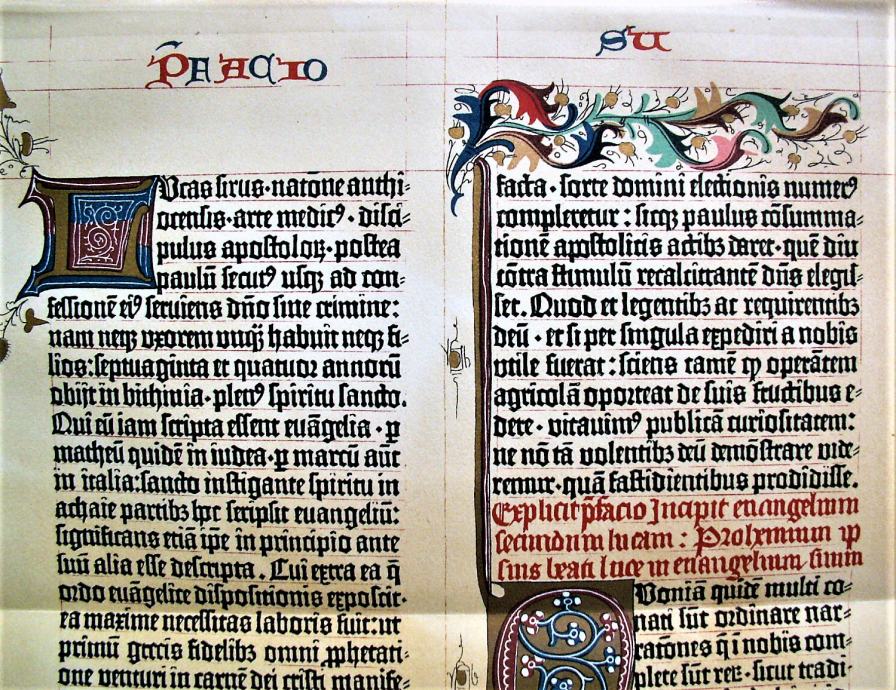 P̄FACIO
Lucas sirus·natōne anthi-
ocensis·arte medic⁹·disci-
pulus apostoloꝝ·postea
paulū secut⁹ usqꝫ ad con-
fessionē ei⁹ seruiens dño sine crimine:
nam neqꝫ vxorem vnqꝫ̄ habuit neqꝫ fi-
lios:septuaginta et quatuor annorū
obijt in bithinia·plen⁹ spiritu sancto.
Qui cū iam scripta essent euāgelia·ꝑ
matheū quidē in iudea·ꝑ marcū aūt
in italia:sancto instigante spiritu in
achaie partibꝫ hoc scripsit euangeliū:
significans etiā ip̄e in principio ante
suū alia esse descripta. Cui extra ea q̄
ordo euāgelice dispositionis exposcit·
ea maxime necessitas laboris fuit:ut
primū grecis fidelibꝫ omni ꝓphetati-
one venturi in carnē dei cristi manife-
SŪ
facta·sorte domini electionis numer⁹
compleretur:sicqꝫ paulus cōsumma-
tionē apostolicis actibꝫ daret·quē diu
cōtra stimulū recalcitrantē dñs elegis-
set. Quod et legentibꝫ ac requirentibꝫ
deū·et si per singula expediri a nobis
vtile fuerat:sciens tamē ꝙ operātem
agricolā oporteat de suis fructibus e-
dere·vitauim⁹ publicā curiositatem:
ne nō tā volentibꝫ deū demōstrare vide-
remur·quā fastidientibus prodidisse.
Explicit p̄facio Incipit euangelium
secundum lucam: Prohemium ip̄
sius beati luce in euangelium suum
Quoniā quidē multi co-
nati sūt ordinare nar-
rationes q̄ i nobis com-
plete sūt reꝝ·sicut tradi-